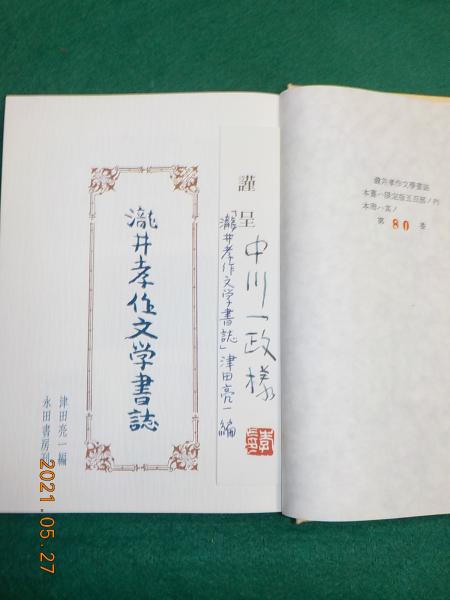 瀧井孝作文學書誌
本書ハ限定版五百部ノ内
本冊ハ其ノ
第 80 番
謹呈
中川一政様
「瀧井孝作文学書誌」津田亮一編
瀧井孝作文学書誌
津田亮一編
永田書房刊
2021.05.27